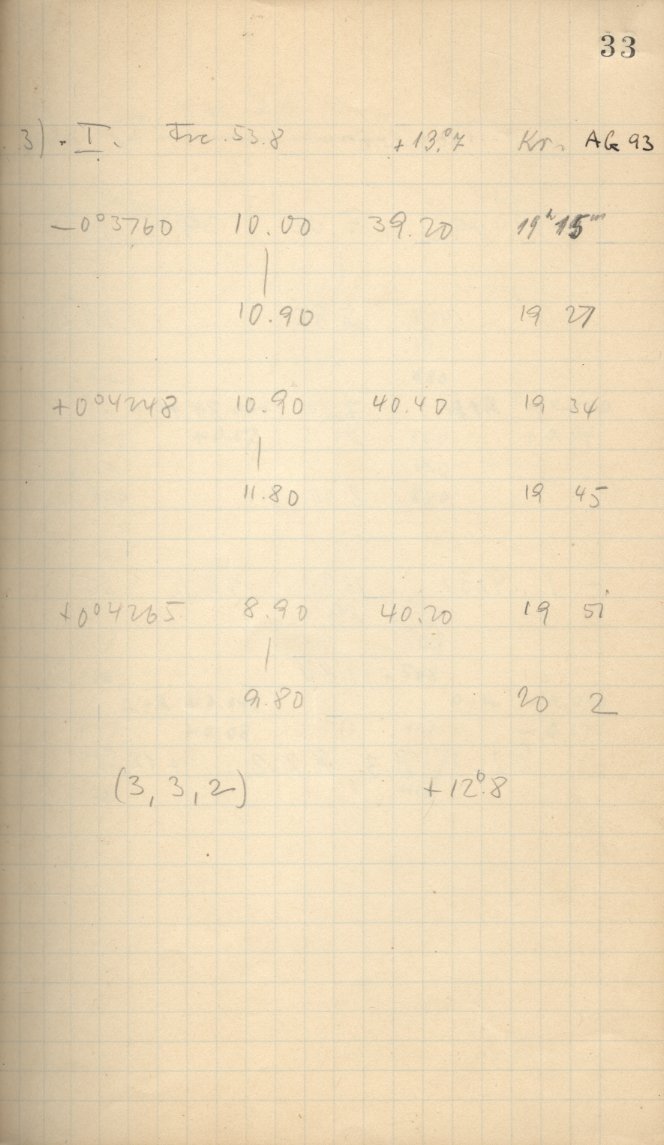 33
3) . I. Fvc. 53.8 +13.°7 Kr. AG 93
-0°3760 10.00 39.20 19ʰ 15ᵐ
|
10.90 19 27
+0°4248 10.90 40.40 19 34
|
11.80 19 45
+0°4265 8.90 40.20 19 51
|
9.80 20 2
(3, 3, 2) +12.°8